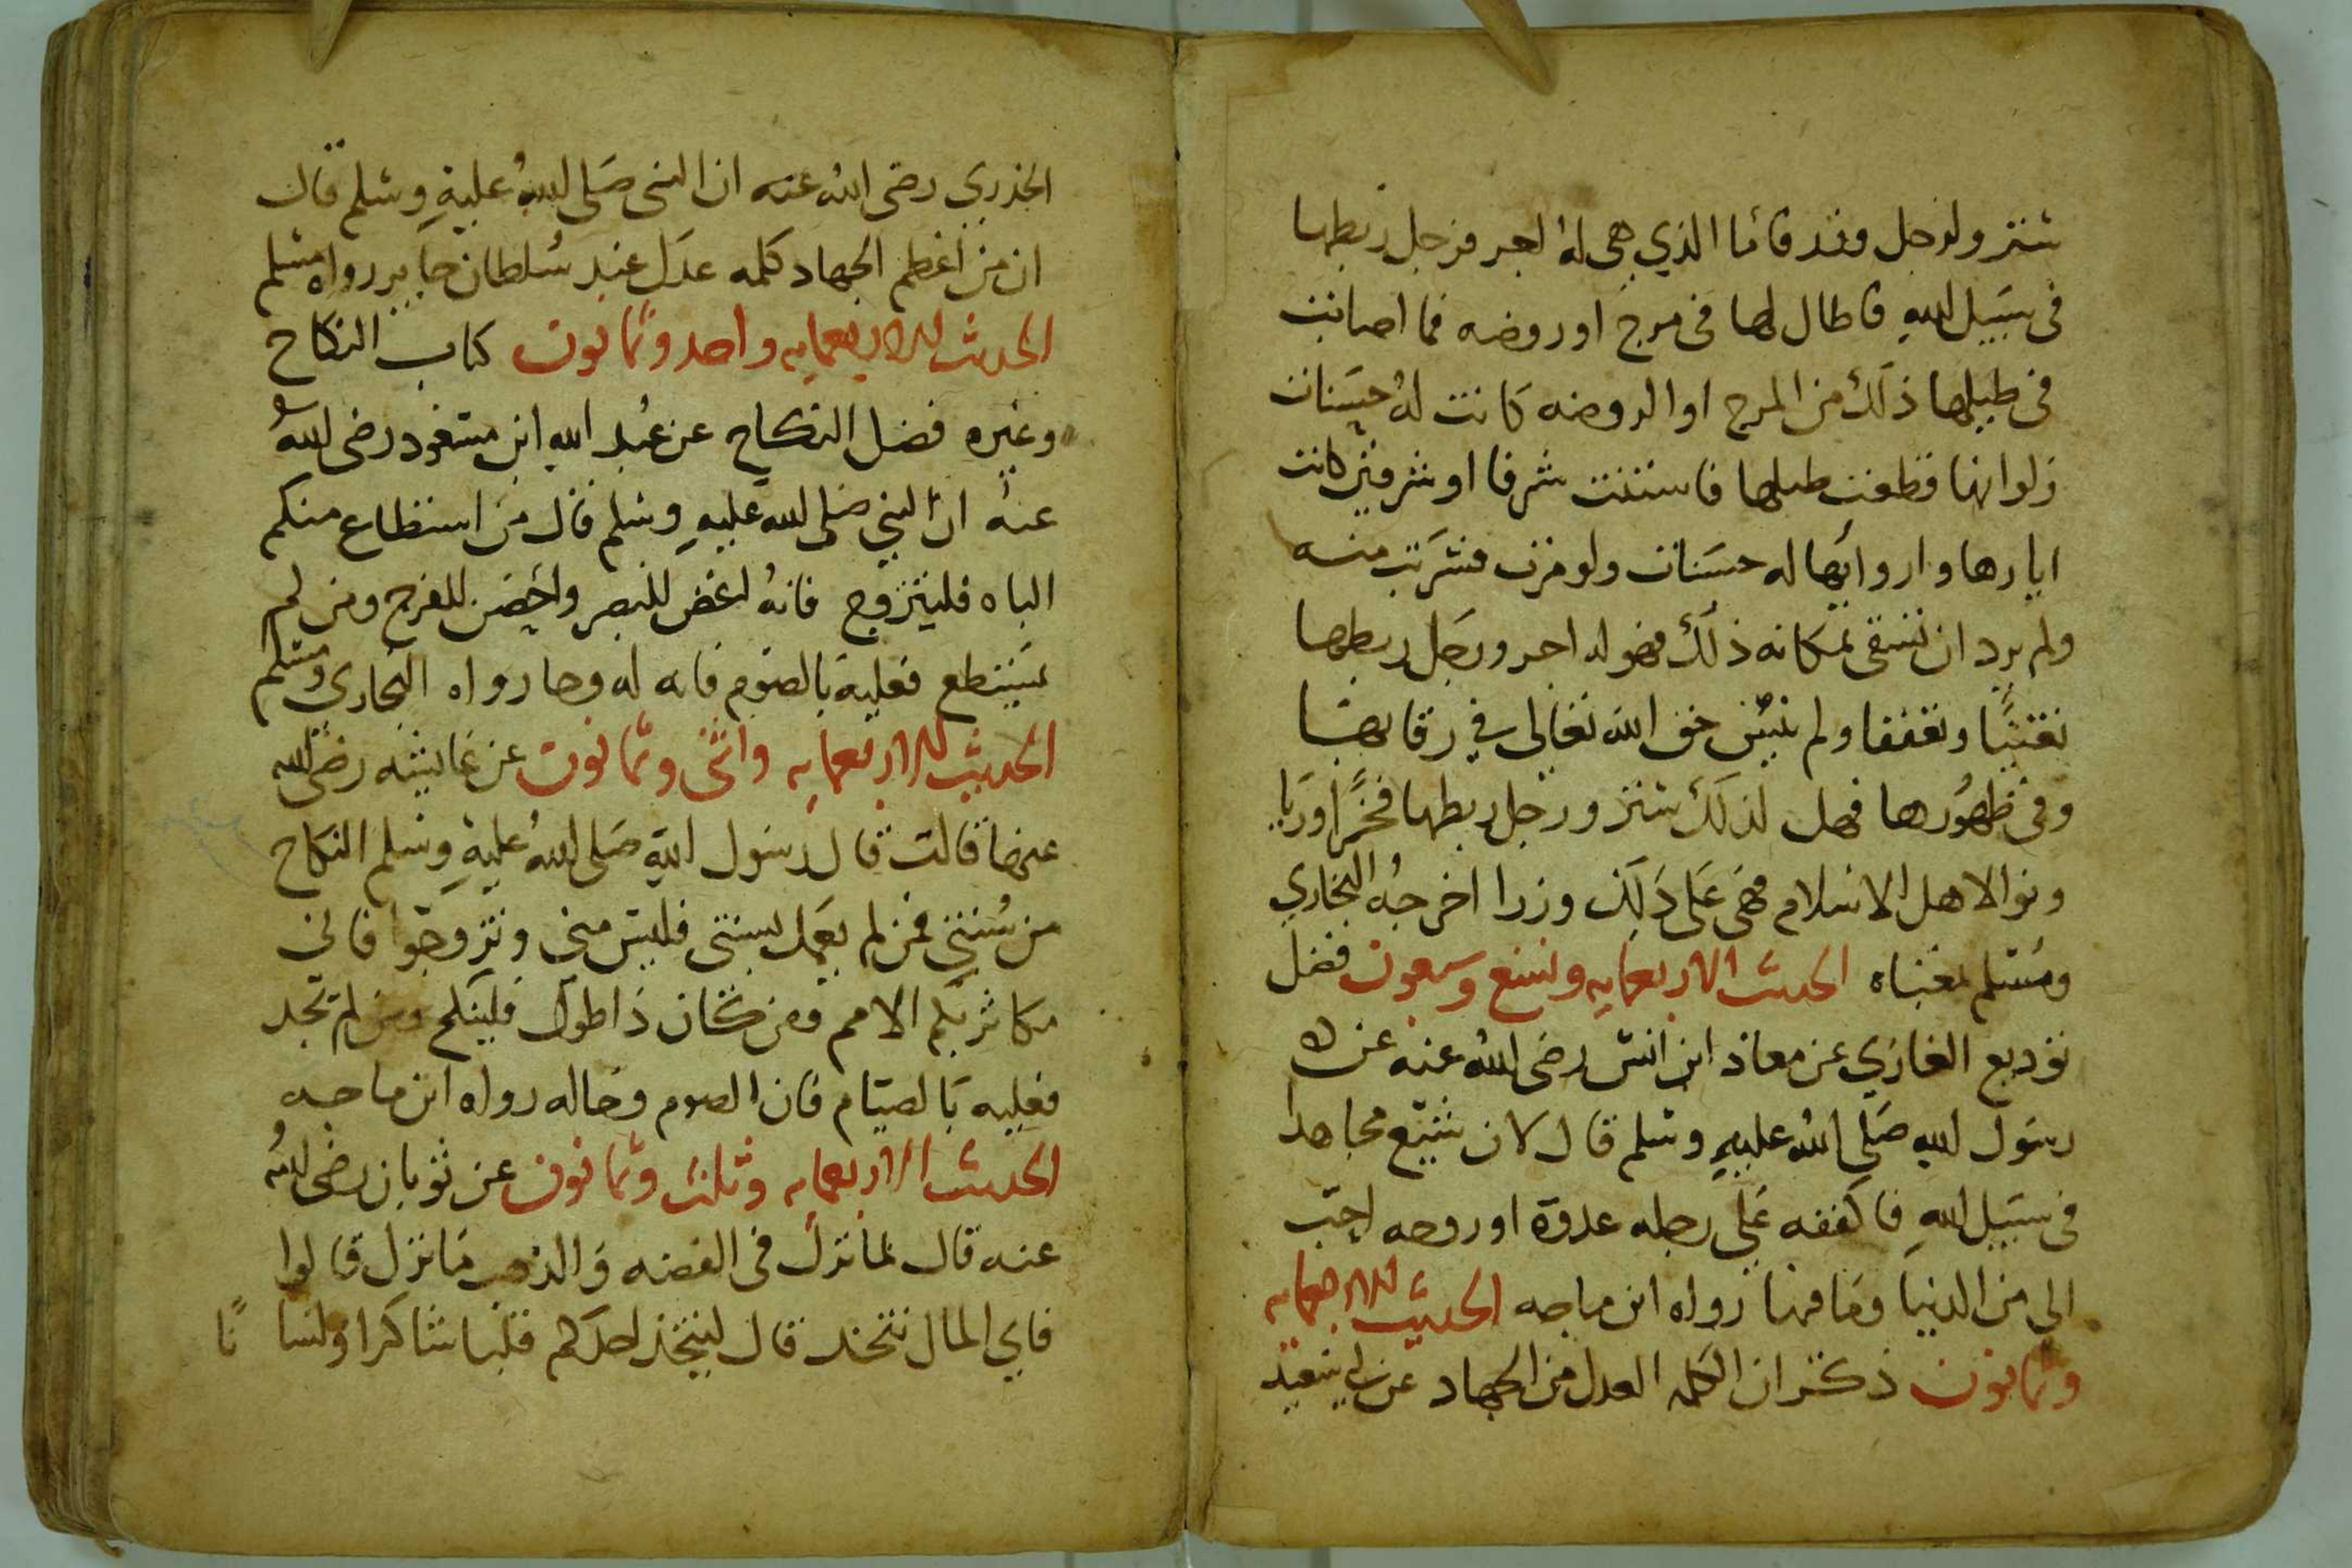 ستر ولرجل وزر فاما الذي هي له اجر فرجل ربطها
في سبيل الله فاطال لها في مرج او روضه فما اصابت
في طيلها ذلك من المرج او الروضه كانت له حسنات
ولو انها قطعت طيلها فاستنت شرفا او شرفين كانت
اثارها وارواثها له حسنات ولو مرت فشربت منه
ولم يرد ان تسقى بمكانه ذلك فهو له اجر ورجل ربطها
تغنيا وتعففا ولم ينس حق الله تعالى في رقابها
وفي ظهورها فهل لذلك ستر ورجل ربطها فخرا وريا
ونوا لاهل الاسلام فهي على ذلك وزرا اخرجه البخاري
ومسلم بمعناه الحديث الاربعمايه وتسع وسبعون فضل
توديع الغازي عن معاذ ابن انس رضى الله عنه عن
رسول الله صلى الله عليه وسلم قال لان شيع مجاهدا
في سبيل الله فاكففه على رحله غدوة او روحه احب
الي من الدنيا وما فيها رواه ابن ماجه الحديث الاربعمايه
وثمانون ذكر ان الكلمه العدل من الجهاد عن ابي سعيد
الخدري رضى الله عنه ان النبى صلى الله عليه وسلم قال
ان من اعظم الجهاد كلمه عدل عند سلطان جاير رواه مسلم
الحديث الاربعمايه واحد وثمانون كتاب النكاح
وغيره فضل النكاح عن عبد الله ابن مسعود رضى الله
عنه ان النبي صلى الله عليه وسلم قال من استطاع منكم
الباه فليتزوج فانه اغض للبصر واحصن للفرج ومن لم
يستطع فعليه بالصوم فانه له وجا رواه البخاري ومسلم
الحديث الاربعمايه واثنى وثمانون عن عايشه رضى الله
عنها قالت قال رسول الله صلى الله عليه وسلم النكاح
من سنتي فمن لم يعمل بسنتى فليس منى وتزوجوا فانى
مكاثر بكم الامم ومن كان ذا طول فلينكح ومن لم يجد
فعليه بالصيام فان الصوم وجا له رواه ابن ماجه
الحديث الاربعمايه وثلث وثمانون عن ثوبان رضى الله
عنه قال لما نزل فى الفضه والذهب ما نزل قالوا
فاي المال نتخذ قال ليتخذ احدكم قلبا شاكرا ولسا نا